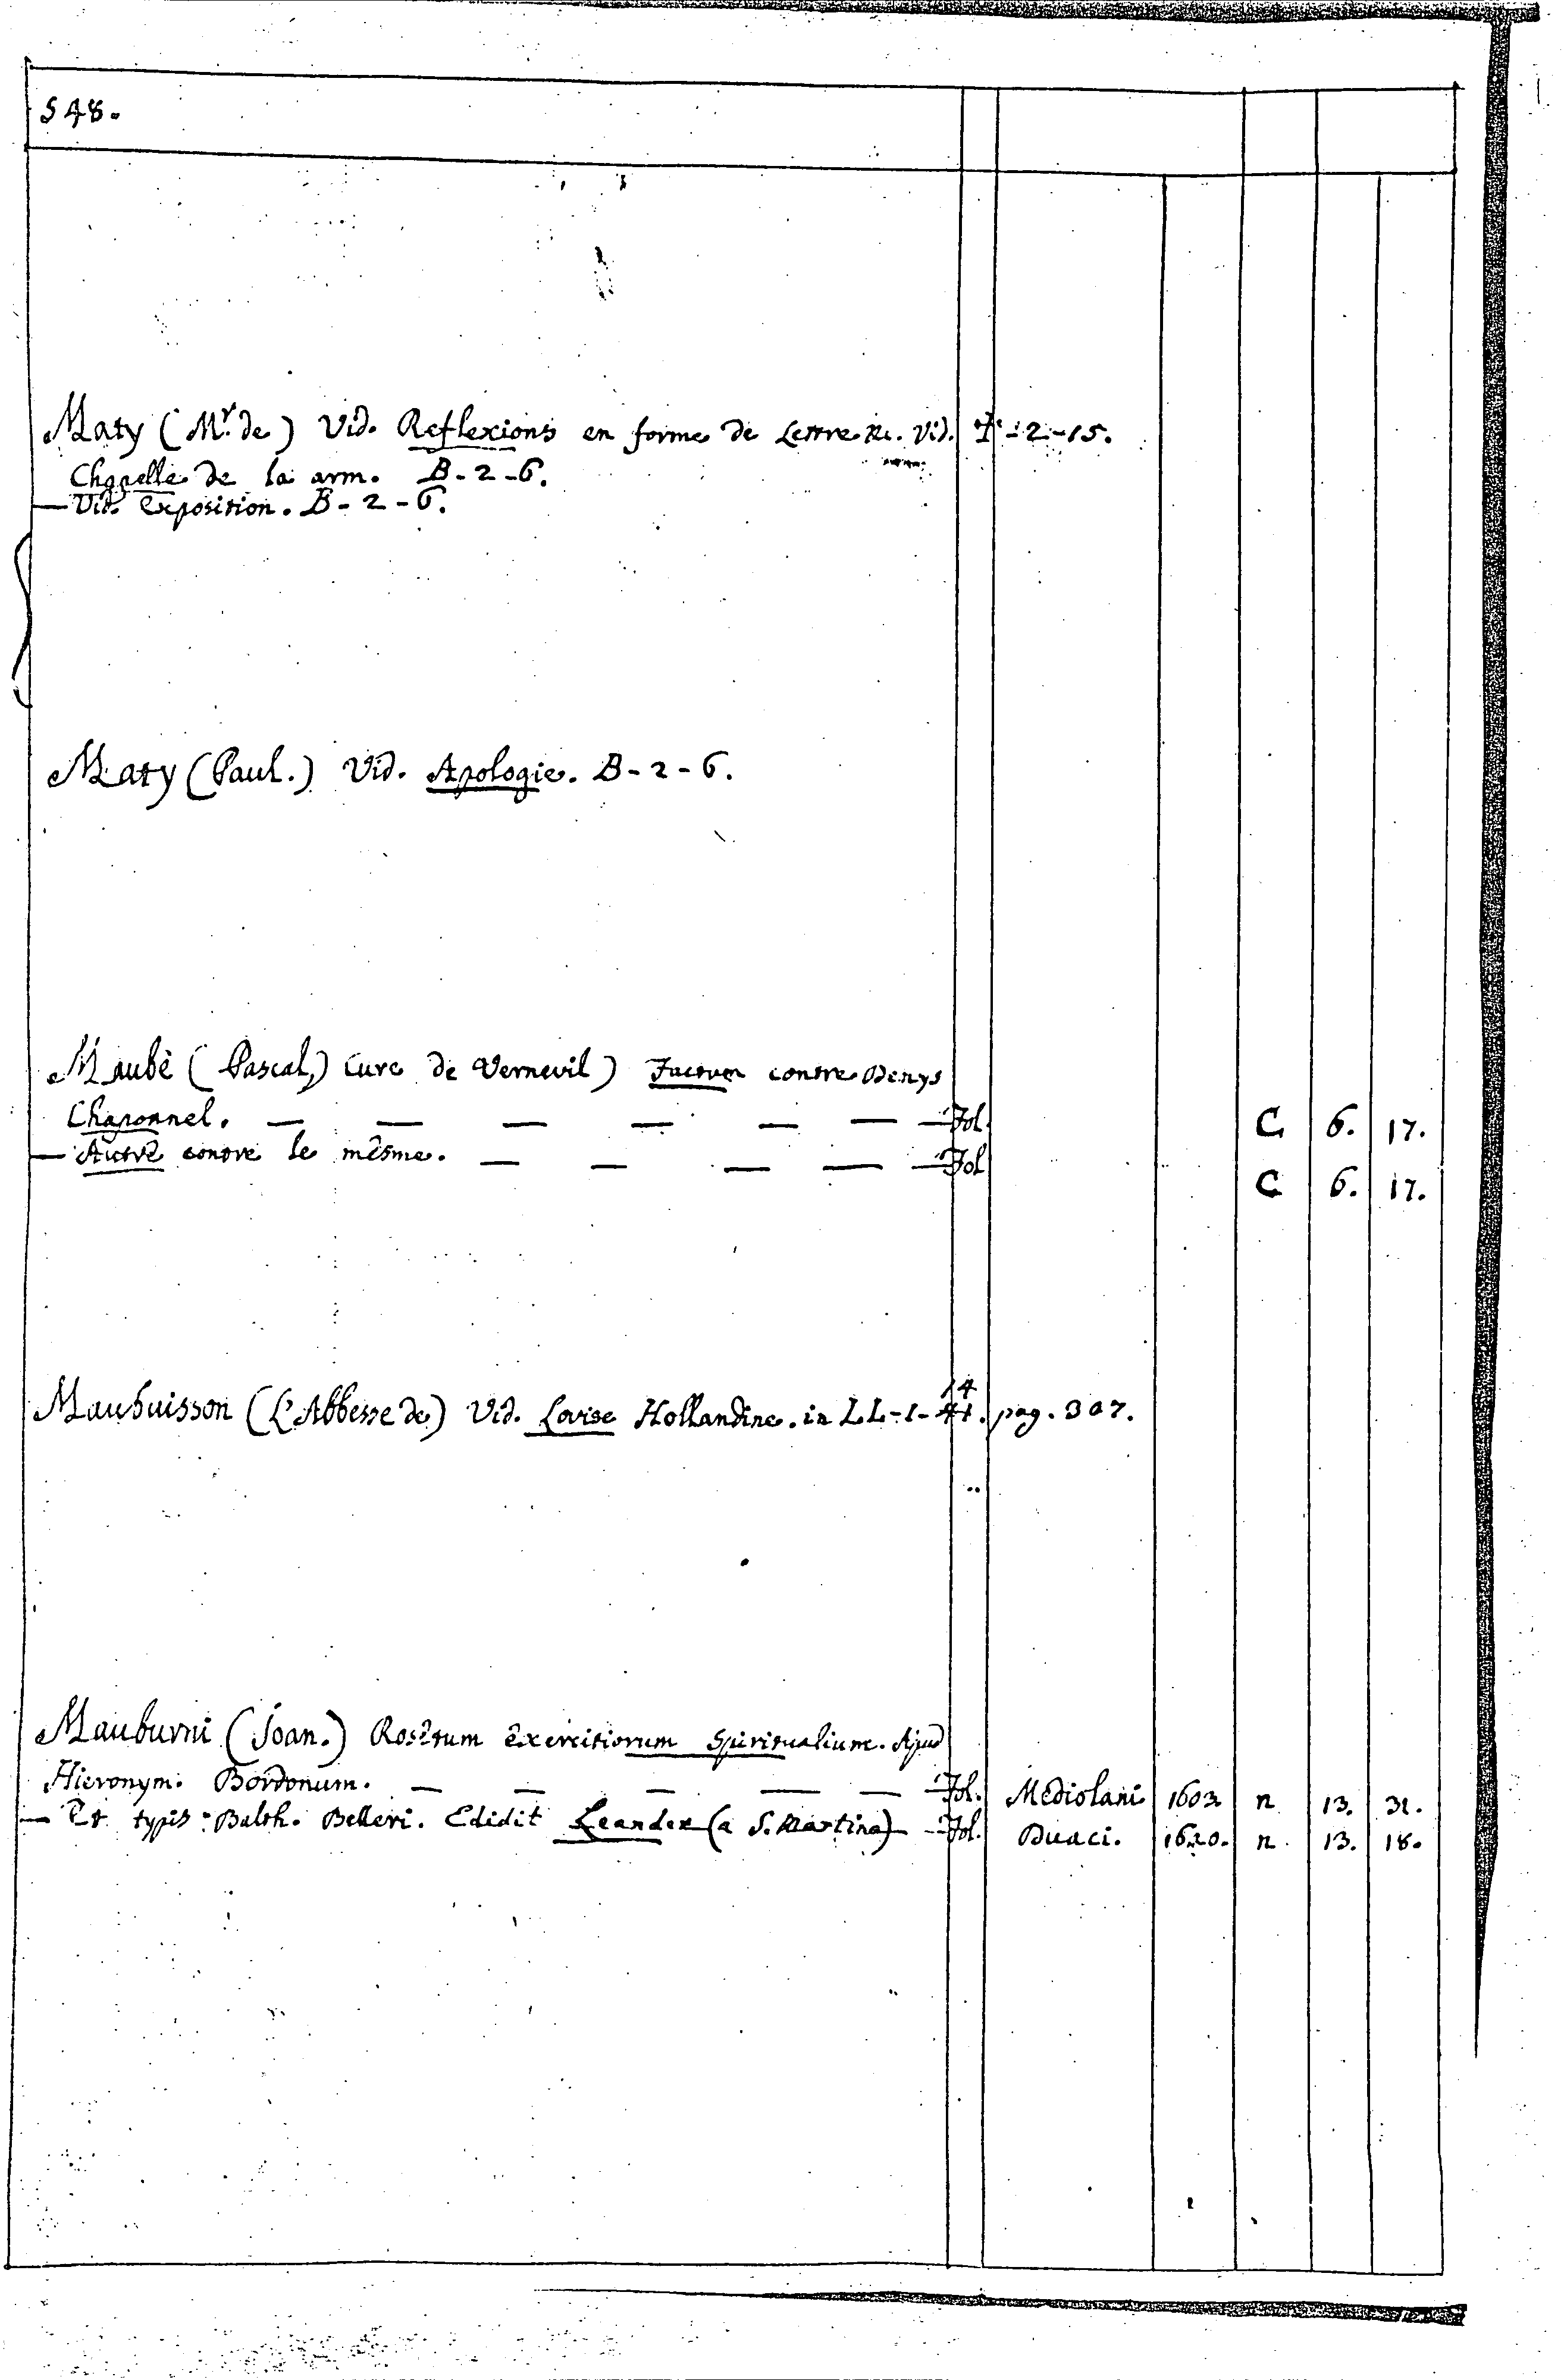 548.
Maty (Mr. de) Vid. Reflexions en forme de Lettre &c. Vid. I-2-15.
Chapelle de la arm. B-2-6.
— Vid. Exposition. B-2-6.
Maty (Paul.) Vid. Apologie. B-2-6.
Maubé (Pascal,) Cure de Vernevil) Factum contre Denys
Chaponnel. — — — — — — Fol. C 6. 17.
— Autre contre le mêsme. — — — — — Fol C 6. 17.
Maubuisson (L'Abbesse de) Vid. Lovise Hollandine. in LL-1-14. pag. 307.
Mauburni (Joan.) Rosetum exercitiorum Spiritualium. Apud
Hieronym. Bordonum. — — — — — Fol. Mediolani 1603 n 13. 31.
— Et typis Balth. Belleri. Edidit Leander (a S. Martino) — Fol. Duaci. 1620. n. 13. 18.